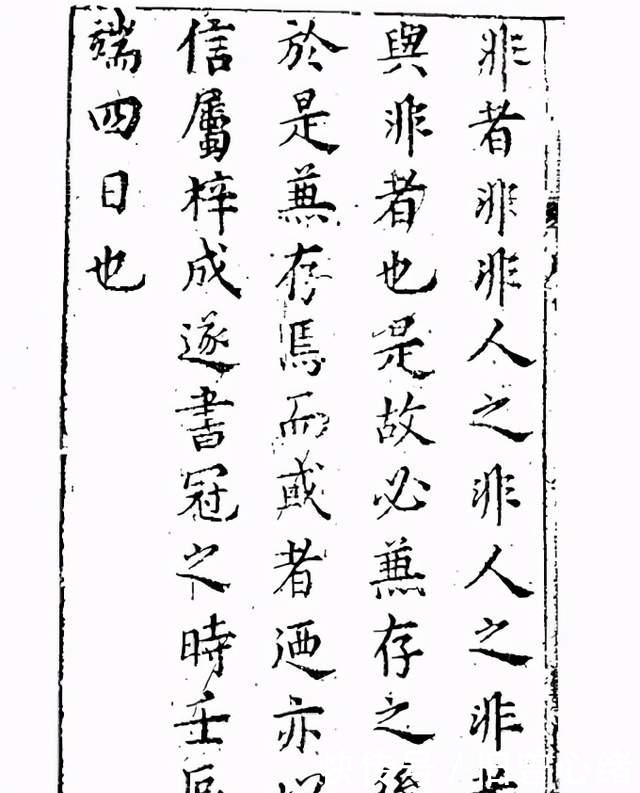 非者非非人之非人之非者
與非者也是故必兼存之後
於是兼存焉而或者迺亦以
信屬梓成遂書冠之時壬辰
端四日也